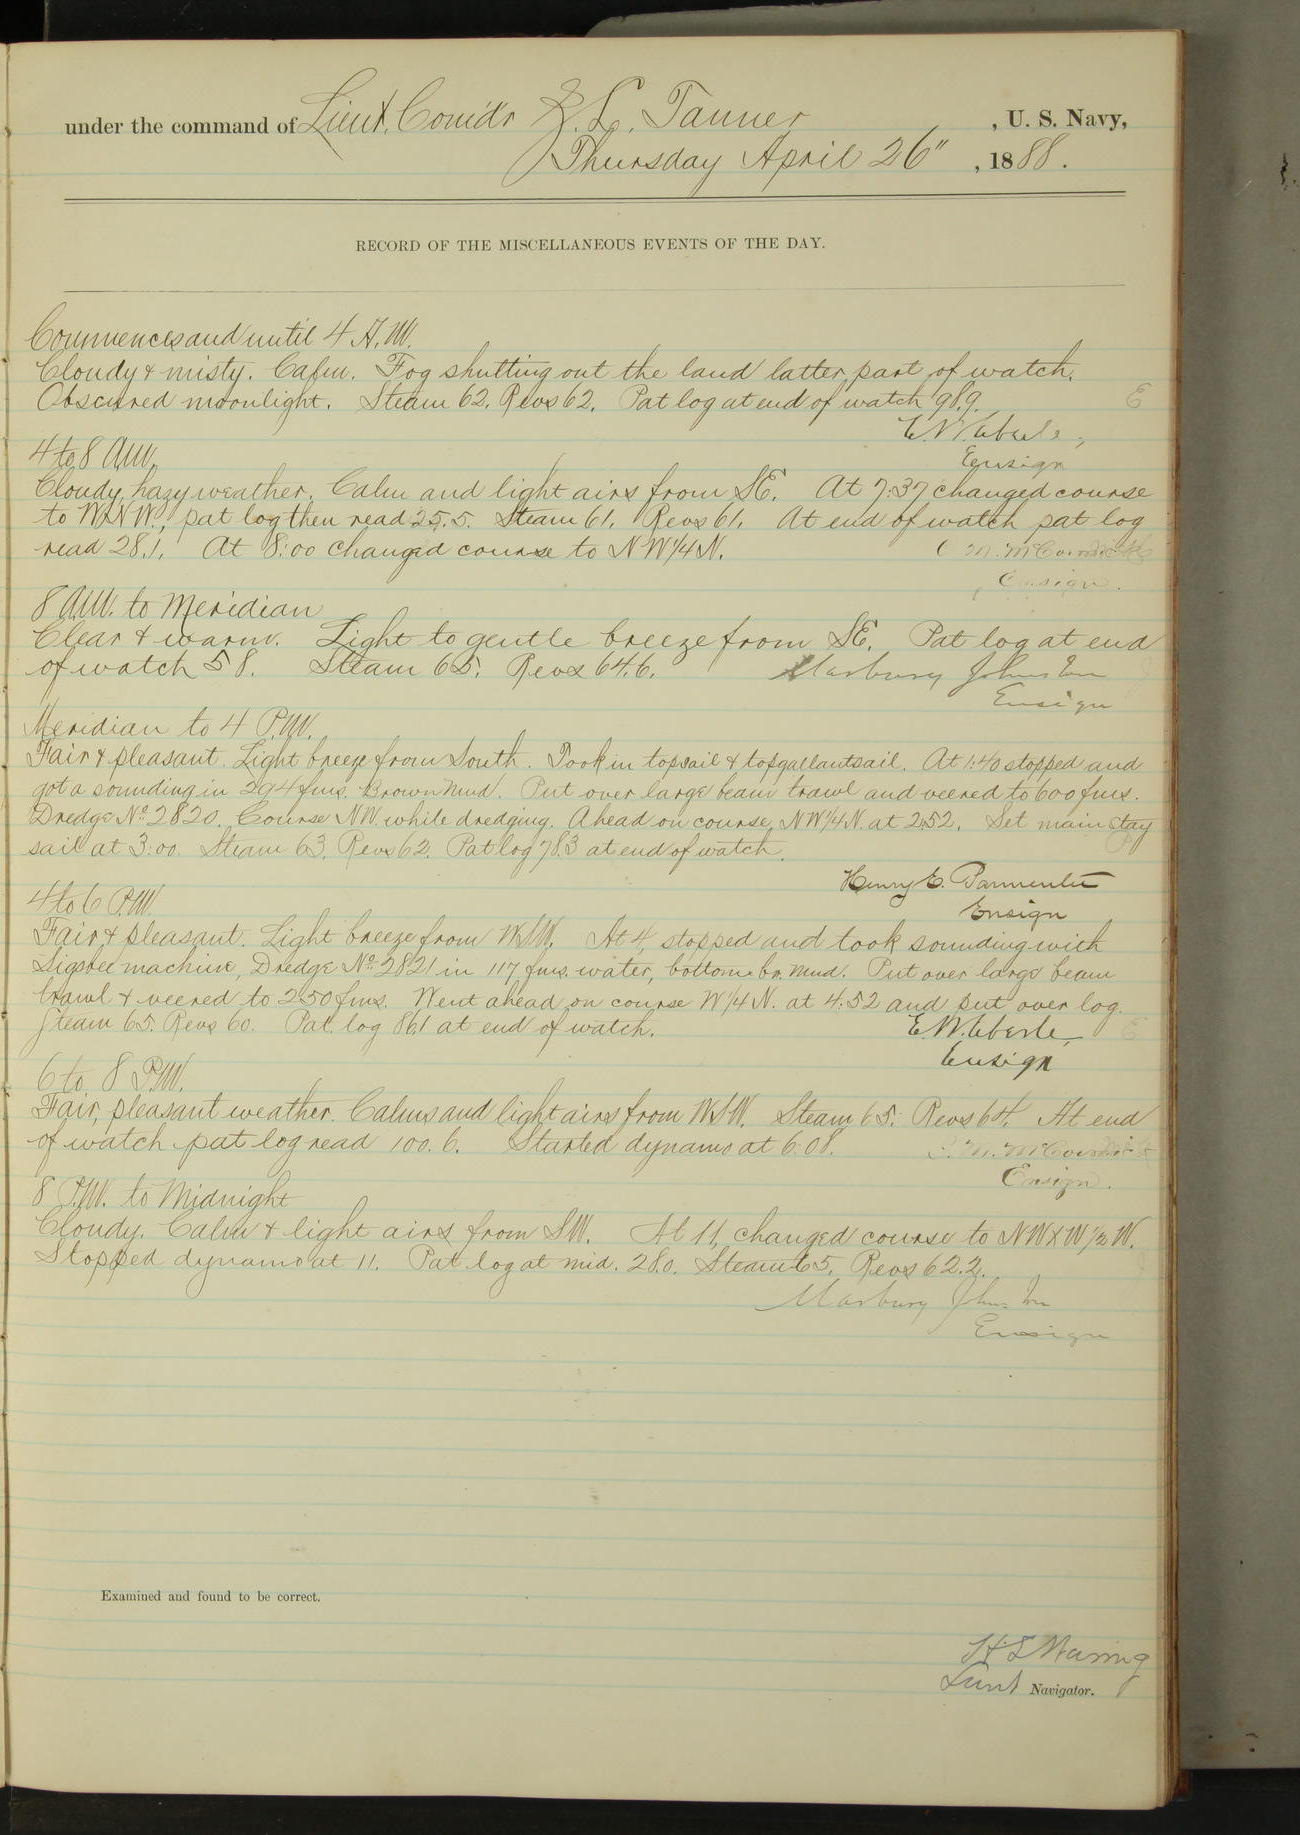 under the command of Lieut. Comd'r Z. L. Tanner, U. S. Navy,
Thursday April 26", 1888.
RECORD OF THE MISCELLANEOUS EVENTS OF THE DAY.
Commences and until 4 A.M.
Cloudy & misty. Calm. Fog shutting out the land latter part of watch.
Obscured moonlight. Steam 62. Revs 62. Pat log at end of watch 98.9.
E. W. Eberle,
Ensign
4 to 8 A.M.
Cloudy, hazy weather. Calm and light airs from SE. At 7:37 changed course
to WNW., pat log then read 25.5. Steam 61. Revs 61. At end of watch pat log
read 28.1. At 8:00 changed course to NW1/4N.
M. McCormick
Ensign.
8 A.M. to Meridian
Clear & warm. Light to gentle breeze from SE. Pat log at end
of watch 58. Steam 65. Revs 64.6.
Marbury Johnston
Ensign
Meridian to 4 P.M.
Fair & pleasant. Light breeze from South. Took in topsail & topgallantsail. At 1:40 stopped and
got a sounding in 294 fms. Brown Mud. Put over large beam trawl and veered to 600 fms.
Dredge No. 2820. Course NW. while dredging. Ahead on course NW1/4N. at 2:52. Set main stay
sail at 3:00. Steam 63. Revs 62. Pat log 78.3 at end of watch.
Henry E. Parmenter
Ensign
4 to 6 P.M.
Fair & pleasant. Light breeze from WSW. At 4, stopped and took sounding with
Sigsbee machine, Dredge No. 2821 in 117 fms. water, bottom br. Mud. Put over large beam
trawl & veered to 250 fms. Went ahead on course W1/4N. at 4:52 and put over log.
Steam 65. Revs 60. Pat. log 86.1 at end of watch.
E. W. Eberle,
Ensign
6 to 8 P.M.
Fair, pleasant weather. Calms and light airs from WSW. Steam 65. Revs 64. At end
of watch pat log read 100.6. Started dynamo at 6:08.
M. McCormick
Ensign.
8 P.M. to Midnight
Cloudy. Calm & light airs from SW. At 11, changed course to NWxW1/2W.
Stopped dynamo at 11. Pat log at mid. 28.0. Steam 65. Revs 62.2.
Marbury Johnston
Ensign
Examined and found to be correct.
H S Waring
Lieut Navigator.